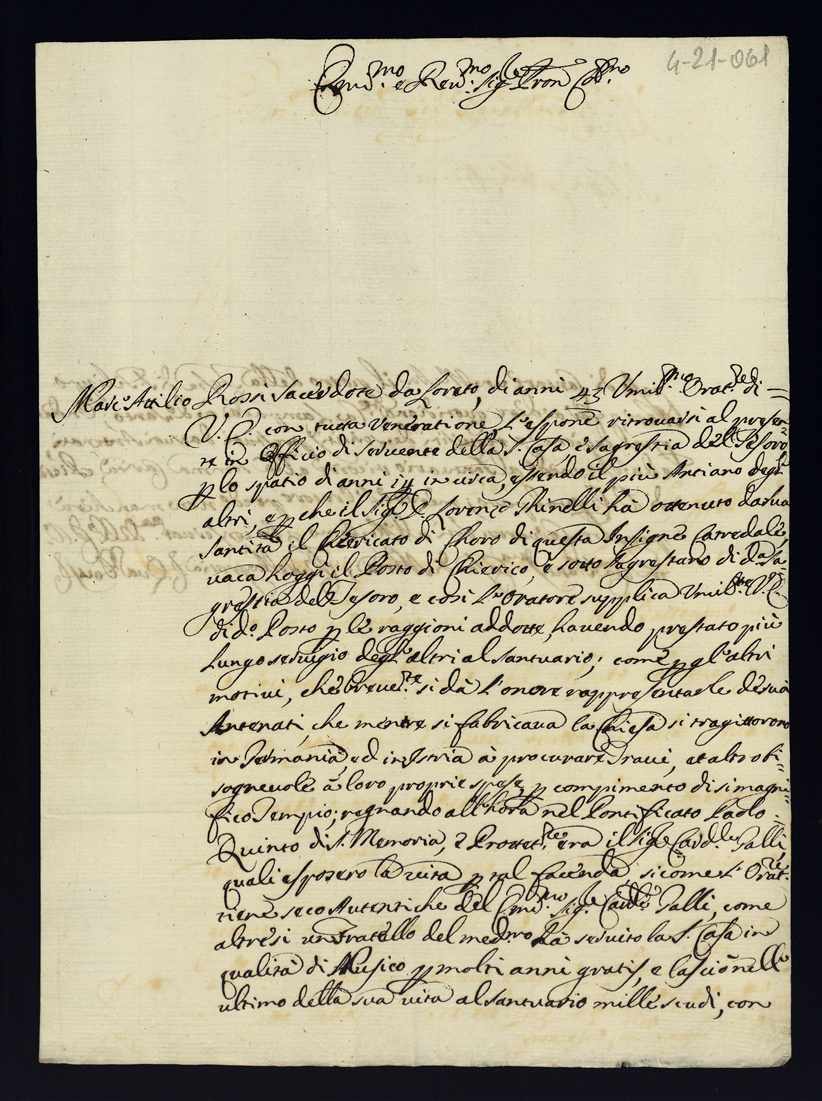 4-21-061
Em.mo e Rev.mo Sig.re Pron Col.mo
Marc.o Attilio Rossi Sacerdote da Loreto, di anni 43 Umil.mo Orat.re di =
V. E. con tutta veneratione L'espone ritrovarsi al presen=
te in Officio di servente della S. Casa e sagrestia del Tesoro
p lo spatio di anni in circa, essendo il più Antiano degl'
altri, e p che il Sig.r D. Lorenzo hà ottenuto da sua
Santità il Chiericato di Choro di questa Insigne Catedale,
vaca hoggi il Posto di Chierico, e sotto sagrestano di d.a Sa=
grestia del Tesoro, e così l'Oratore supplica Umil.te V. E.
di d.o Posto p le raggioni addotte, havendo prestato più
lungo servigio degl'altri al Santuario; come p gl'altri
motivi, che breve.te si dà l'onore rappresentarle de suoi
Antenati, che mentre si fabricava la Chiesa si tragittorono
in Germania, ed in Istria à procurare Travi, et altro bi=
sognevole à loro proprie spese, p compimento di si magni=
fico Tempio; regnando all'hora nel Pontificato Paolo =
Quinto di S. Memoria, e Protet.re era il Sig.r Card.le Galli,
quali esposero la vita p tal facenda, sicome l'Orat.re
tiene seco Autentiche del Em.mo Sig.re Card.le Galli, come
altresi un fratello del med.mo hà servito la S. Casa in
qualità di Musico p molti anni gratis, e lasciò nell'
ultimo della sua vita al Santuario mille scudi, con